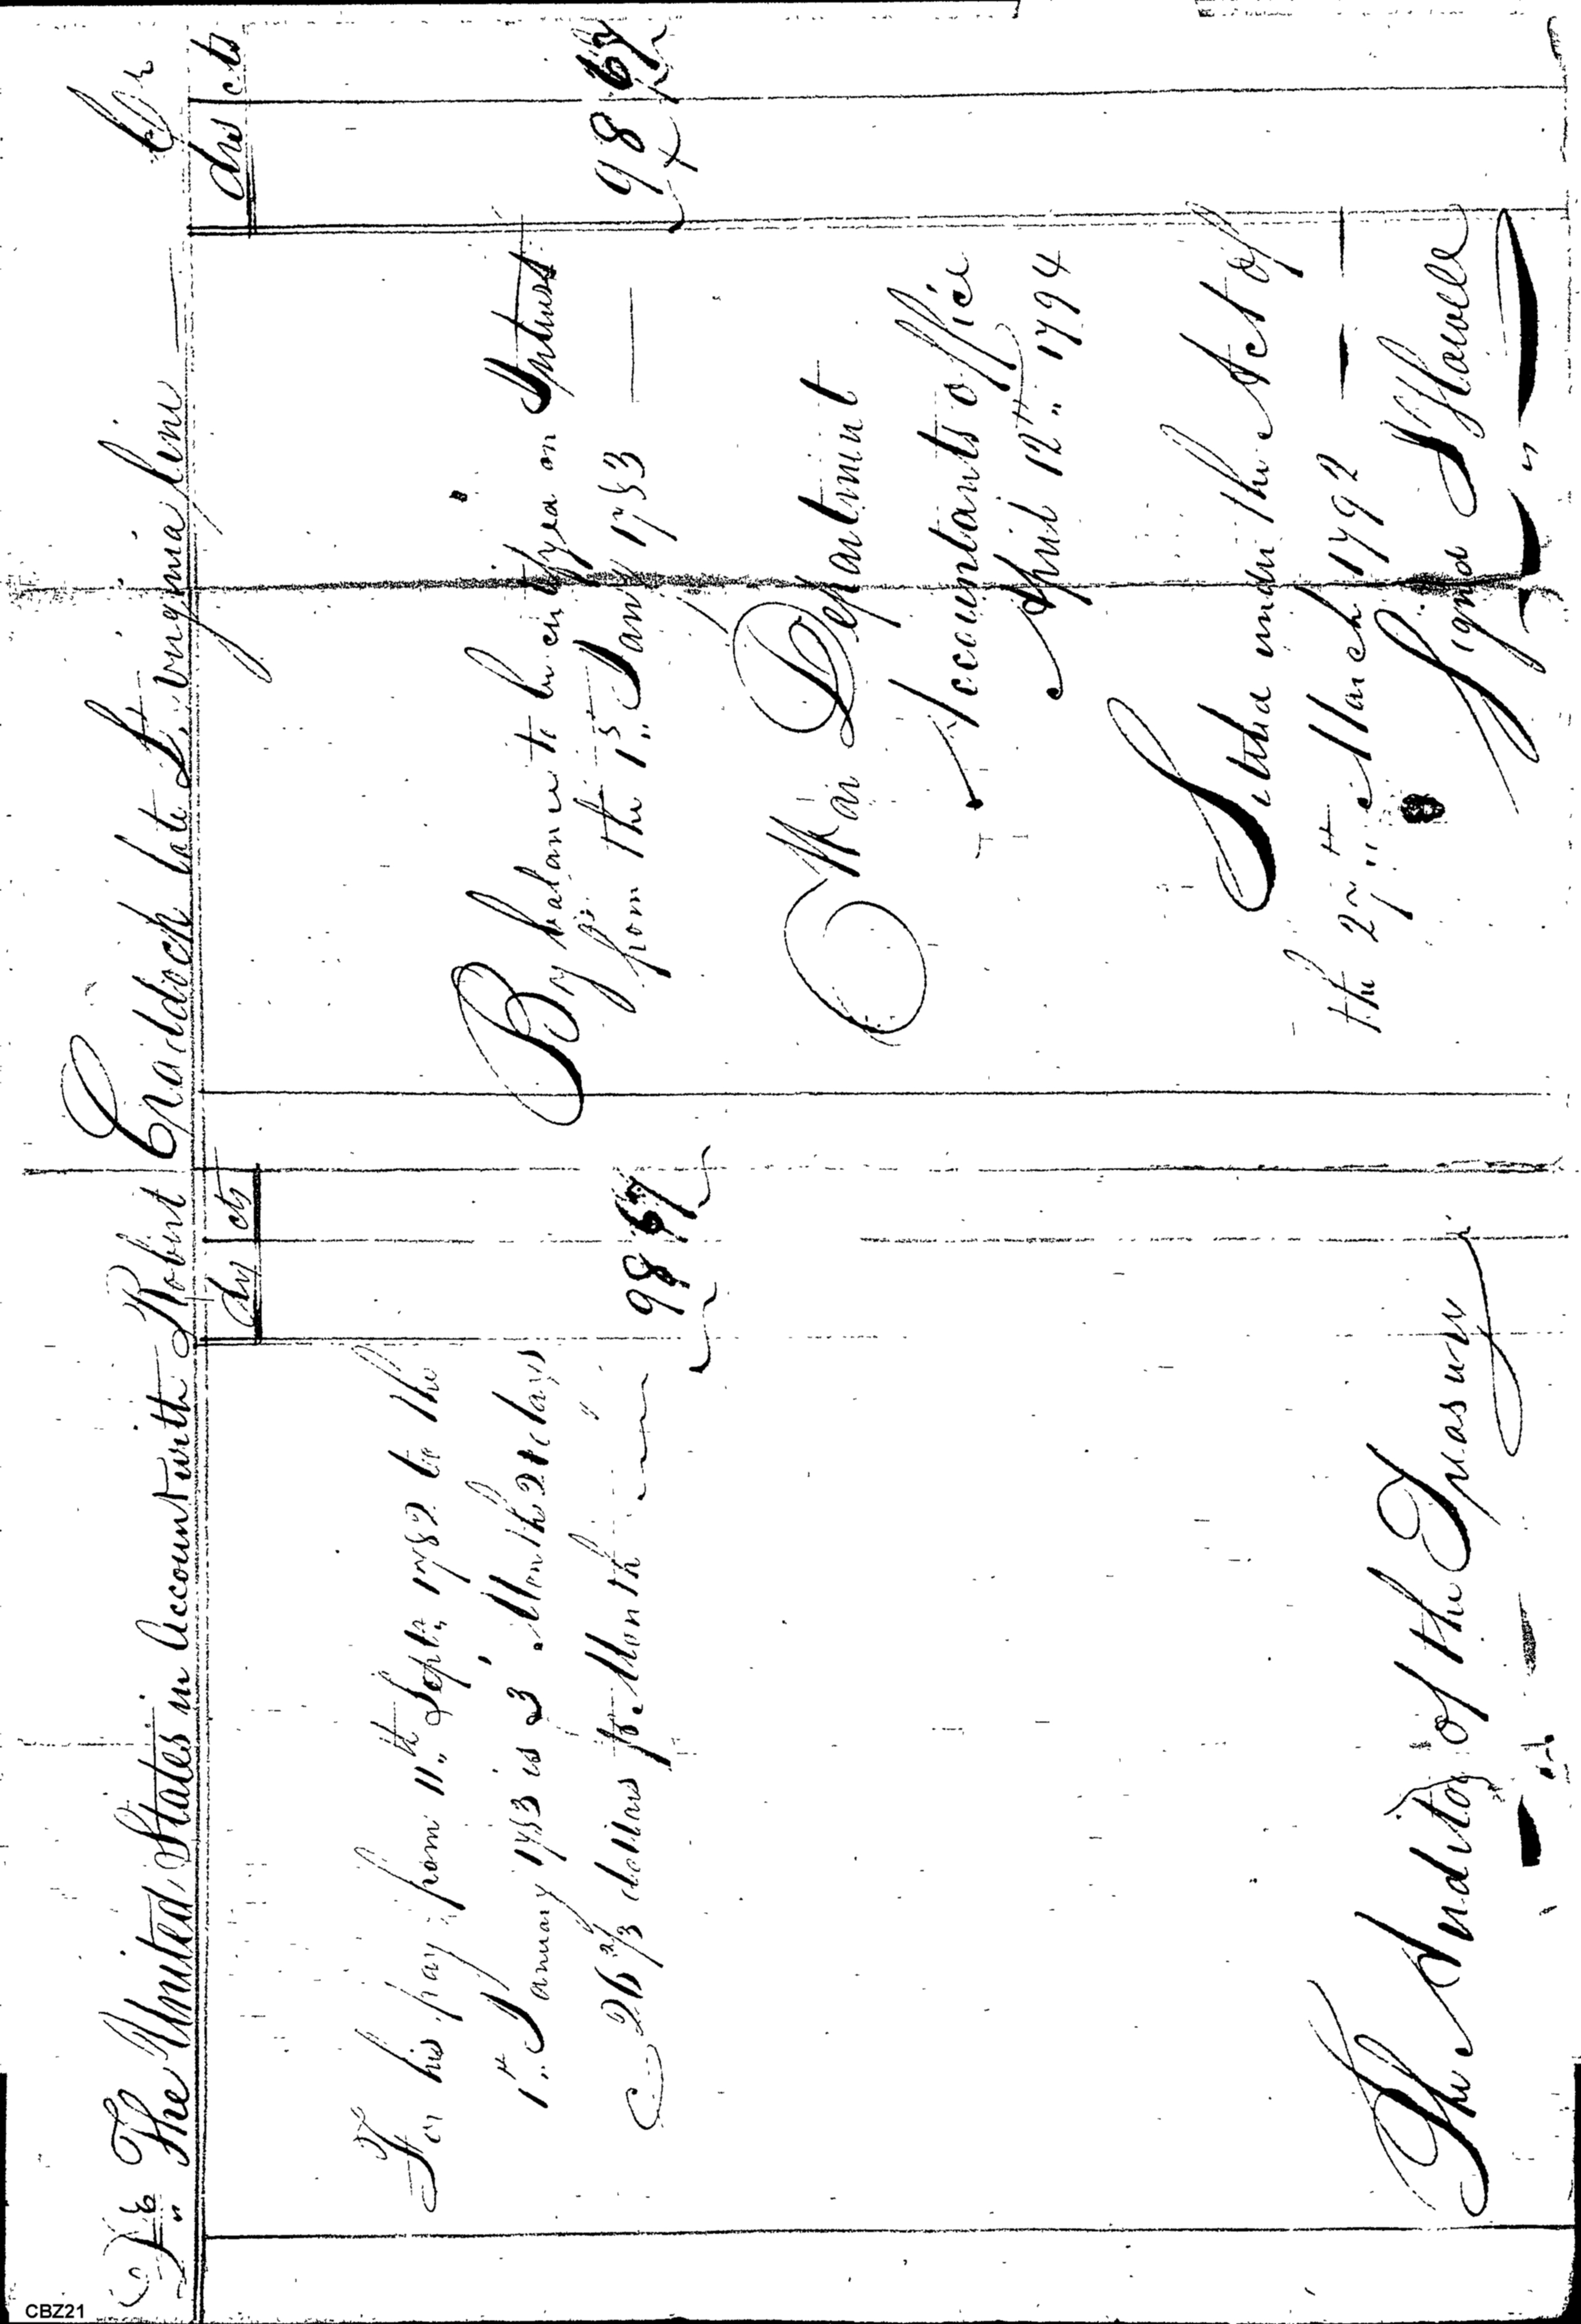 Dr. The United States in Account with Robert Craddock late Lt. Virginia line Cr
dls cts
For his pay from 11th Septr. 1782 to the
1st January 1783 is 3 Months 21 days
@ 26 2/3 dollars pr Month 98 67
The Auditor of the Treasury
drs cts
By balance to be certifyed on Interest
from the 1st Jany 1783 98 67
War Department
Accountants office
April 12th 1794
Settled under the Act of
the 27th March 1792
Signed J Howell
CBZ21